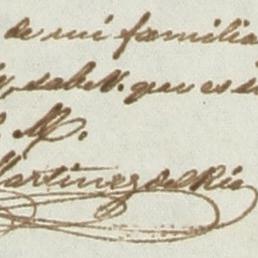 de mi familia
sabe V. que es su
M.
Martinez del Rio